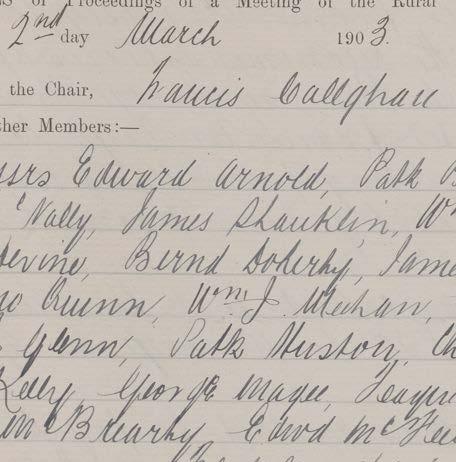 of Proceedings of a Meeting of the Rural
2nd day March 1903.
the Chair, Francis Callghan
ther Members:—
ssrs Edward Arnold, Patk
cNally, James Shanklin, Wm
Devine, Bernd Doherty, Jame
Quinn, Wm J. Meehan,
Glenn, Patk Huston, Ch
Kelly, George Magee,
McBrearty, Edwd McFee